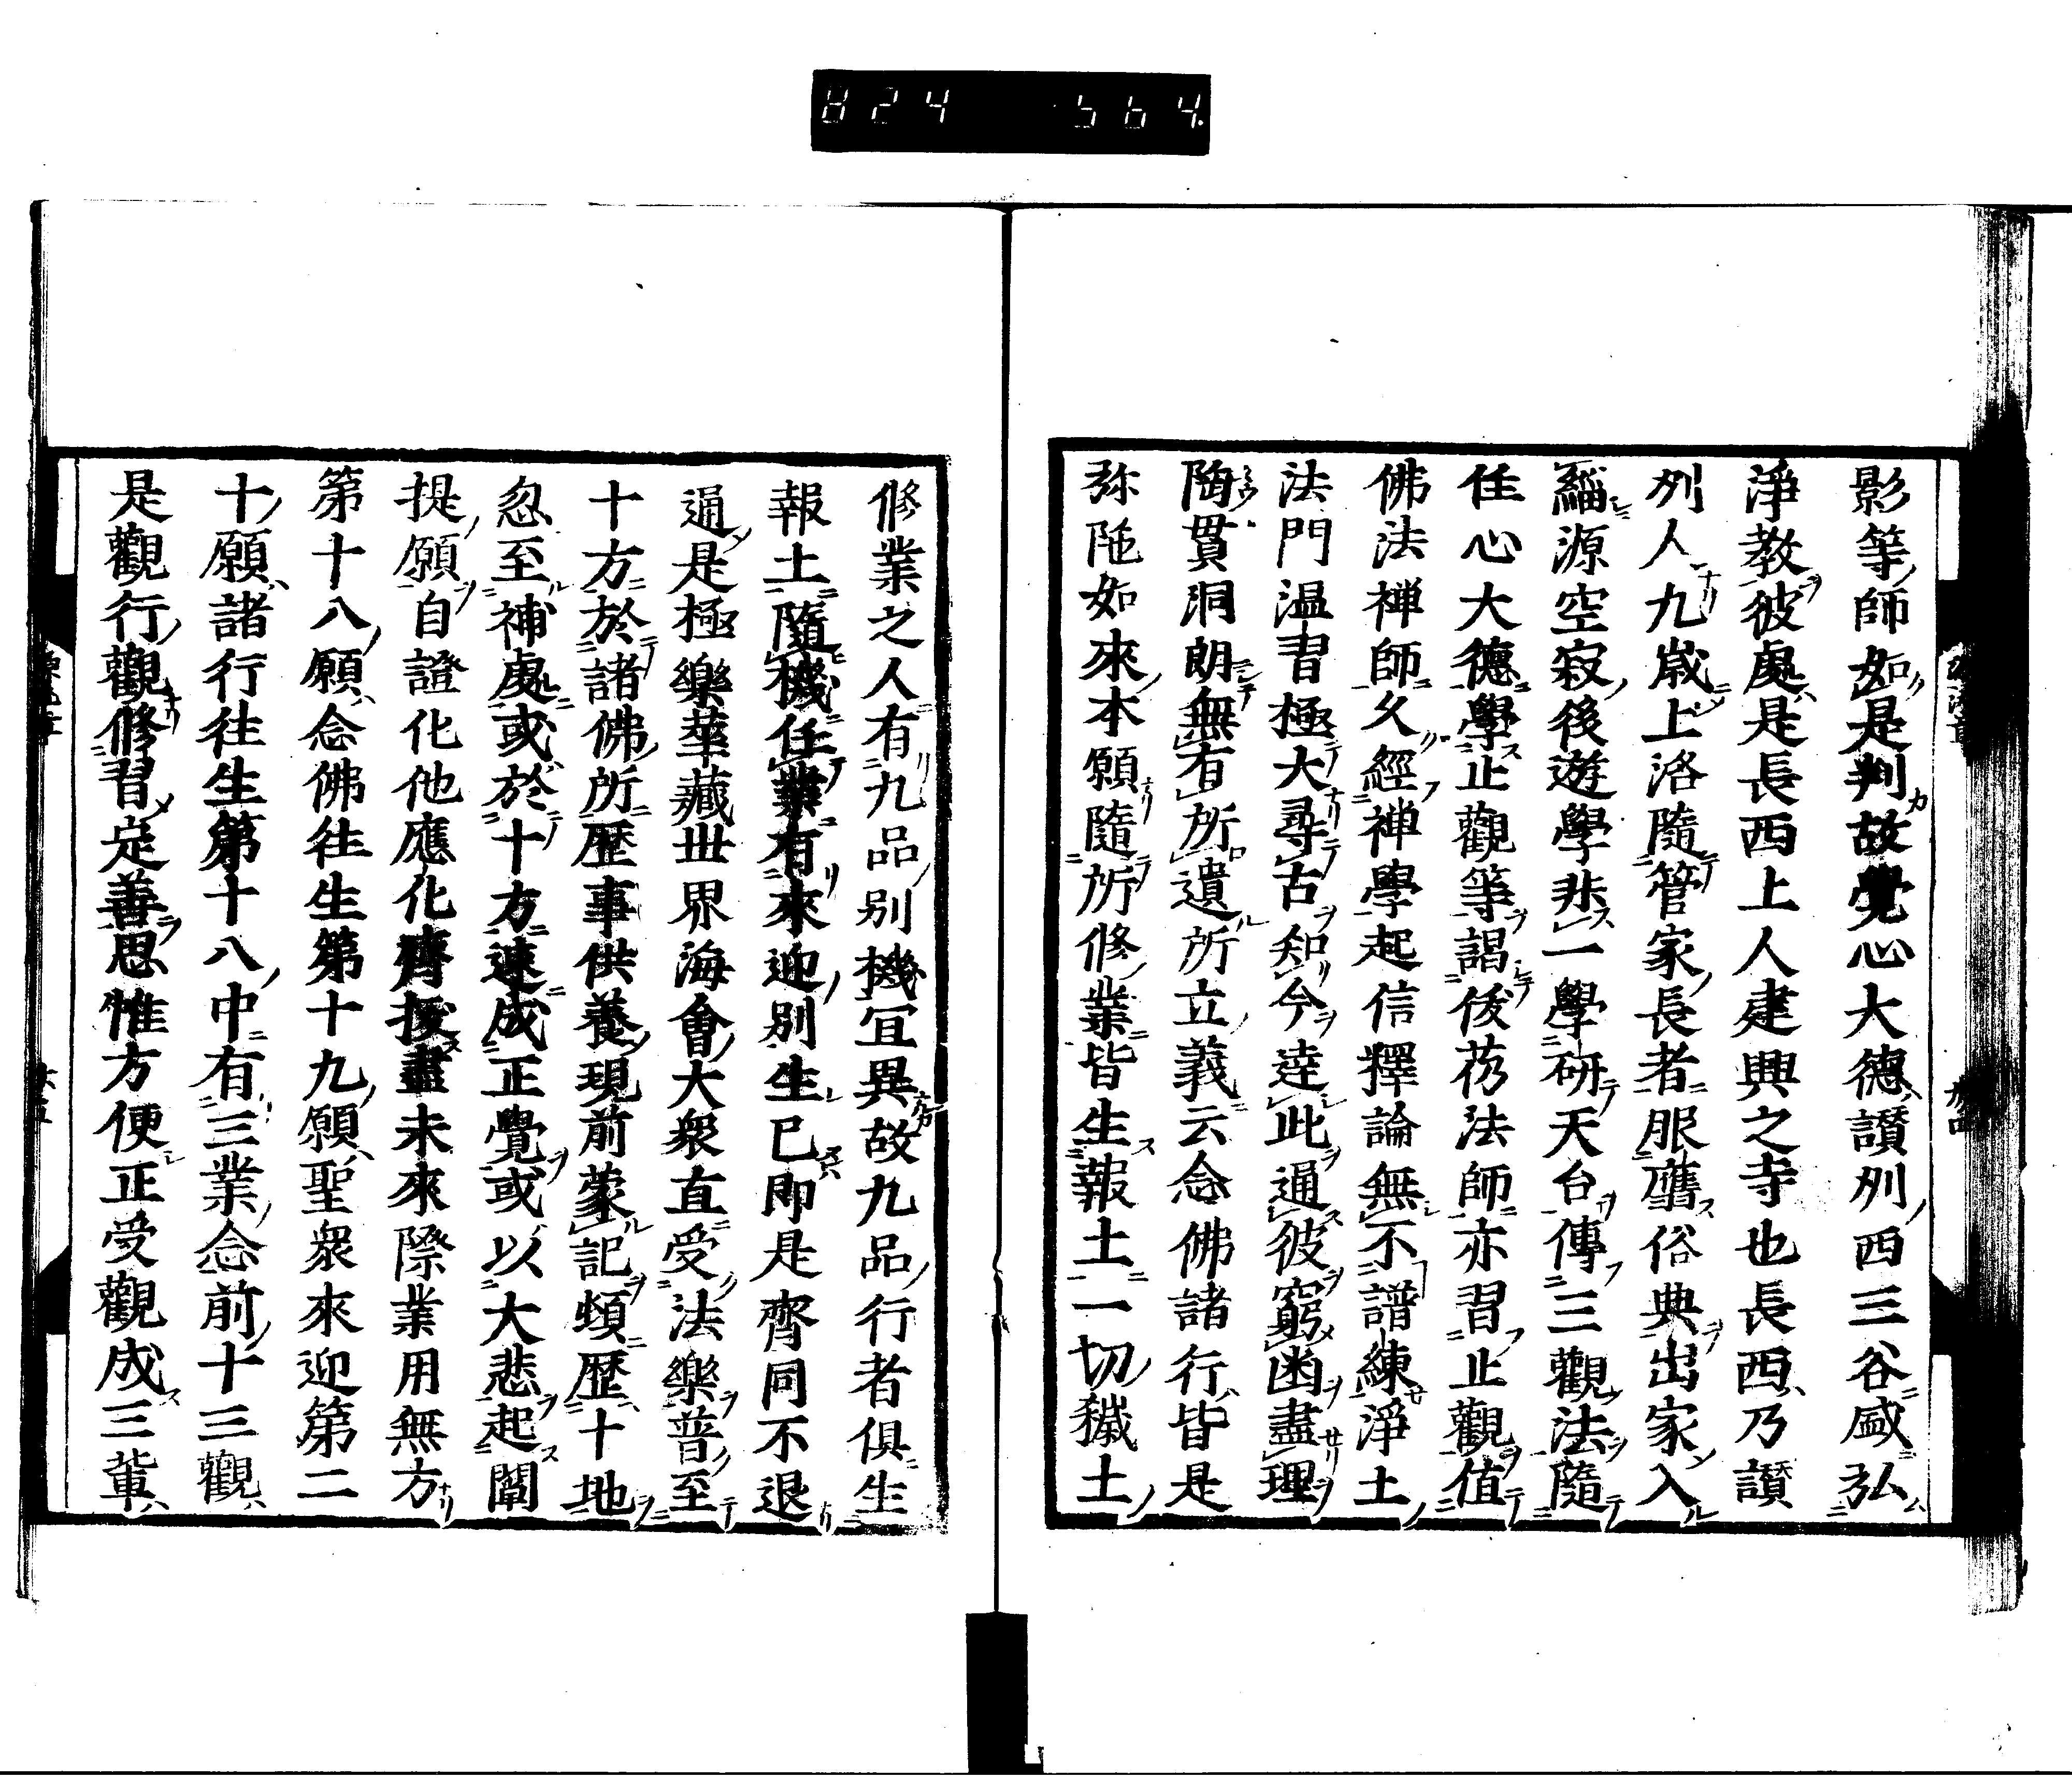 824 564
影等師如是判故覺心大德讃列西三谷盛弘
淨教彼處是長西上人建興之寺也長西乃讃
列人九歳上洛隨管家長者服膺俗典出家入
緇源空寂後遊學非一學研天台傳三觀法隨
住心大德學止觀等謁俊芿法師亦習止觀值
佛法禅師久經禅學起信釋論無不譜練淨土
法門温習極大尋古知今達此通彼窮幽盡理
陶貫洞朗無有所遺所立義云念佛諸行皆是
弥陁如來本願隨所修業皆生報土一切穢土
修業之人有九品別機冝異故九品行者俱生
報土隨機任業有來迎別生已即是齊同不退
通是極樂華藏世界海會大衆直受法樂普至
十方於諸佛所歴事供養現前蒙記頓歴十地
忽至補處或於十方速成正覺或以大悲起闡
提願自證化他應化濟拔盡未來際業用無方
第十八願念佛往生第十九願聖衆來迎第二
十願諸行往生第十八中有三業念前十三觀
是觀行觀修習定善思惟方便正受觀成三輩